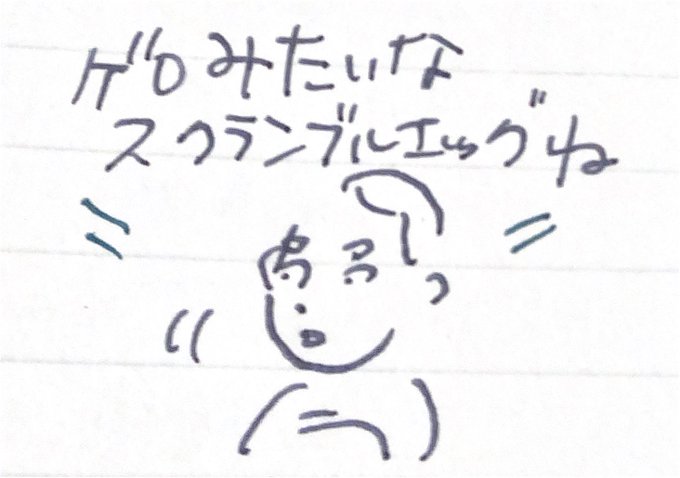 ゲロみたいな
スクランブルエッグね